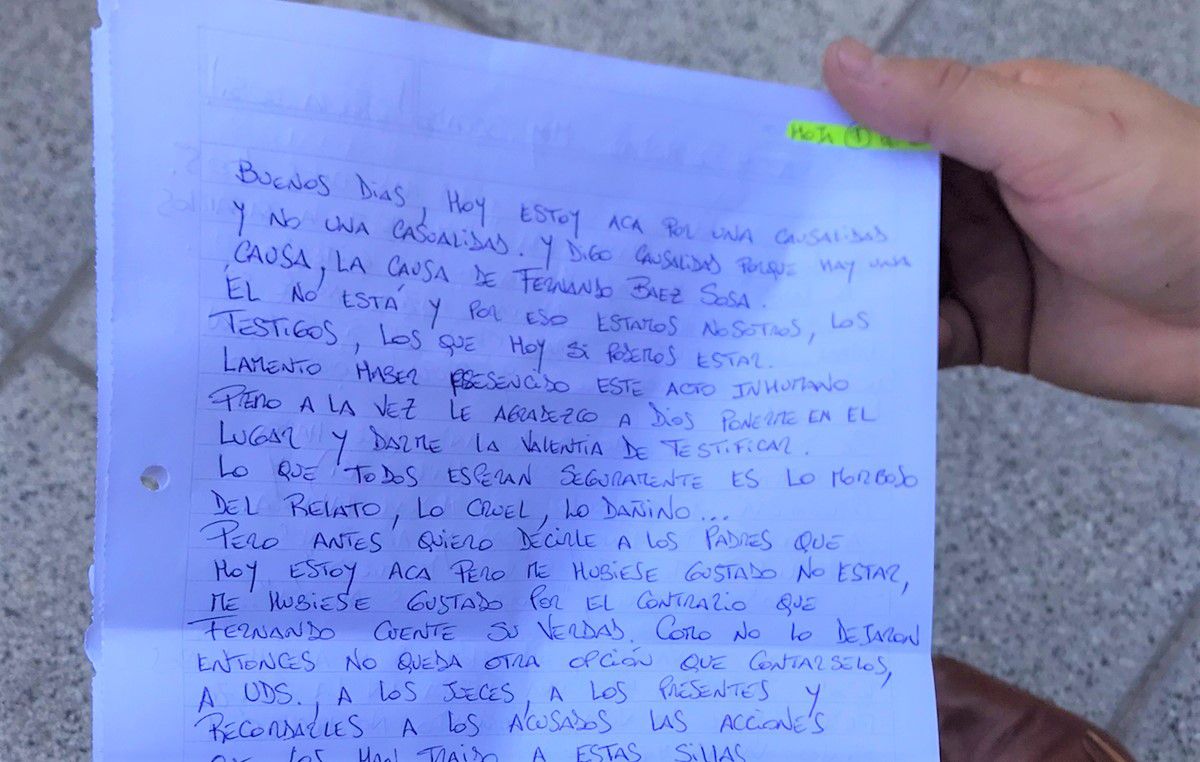 HOJA ①
BUENOS DÍAS, HOY ESTOY ACA POR UNA CAUSALIDAD
Y NO UNA CASUALIDAD. Y DIGO CAUSALIDAD PORQUE HAY UNA
CAUSA, LA CAUSA DE FERNANDO BAEZ SOSA.
ÉL NO ESTÁ Y POR ESO ESTAMOS NOSOTROS, LOS
TESTIGOS, LOS QUE HOY SI PODEMOS ESTAR.
LAMENTO HABER PRESENCIDO ESTE ACTO INHUMANO
PERO A LA VEZ LE AGRADEZCO A DIOS PONERME EN EL
LUGAR Y DARME LA VALENTÍA DE TESTIFICAR.
LO QUE TODOS ESPERAN SEGURAMENTE ES LO MORBOSO
DEL RELATO, LO CRUEL, LO DAÑINO...
PERO ANTES QUIERO DECIRLE A LOS PADRES QUE
HOY ESTOY ACA PERO ME HUBIESE GUSTADO NO ESTAR,
ME HUBIESE GUSTADO POR EL CONTRARIO QUE
FERNANDO CUENTE SU VERDAD. COMO NO LO DEJARON
ENTONCES NO QUEDA OTRA OPCIÓN QUE CONTARSELOS,
A UDS., A LOS JUECES, A LOS PRESENTES Y
RECORDARLES A LOS ACUSADOS LAS ACCIONES
QUE LOS HAN TRAIDO A ESTAS SILLAS